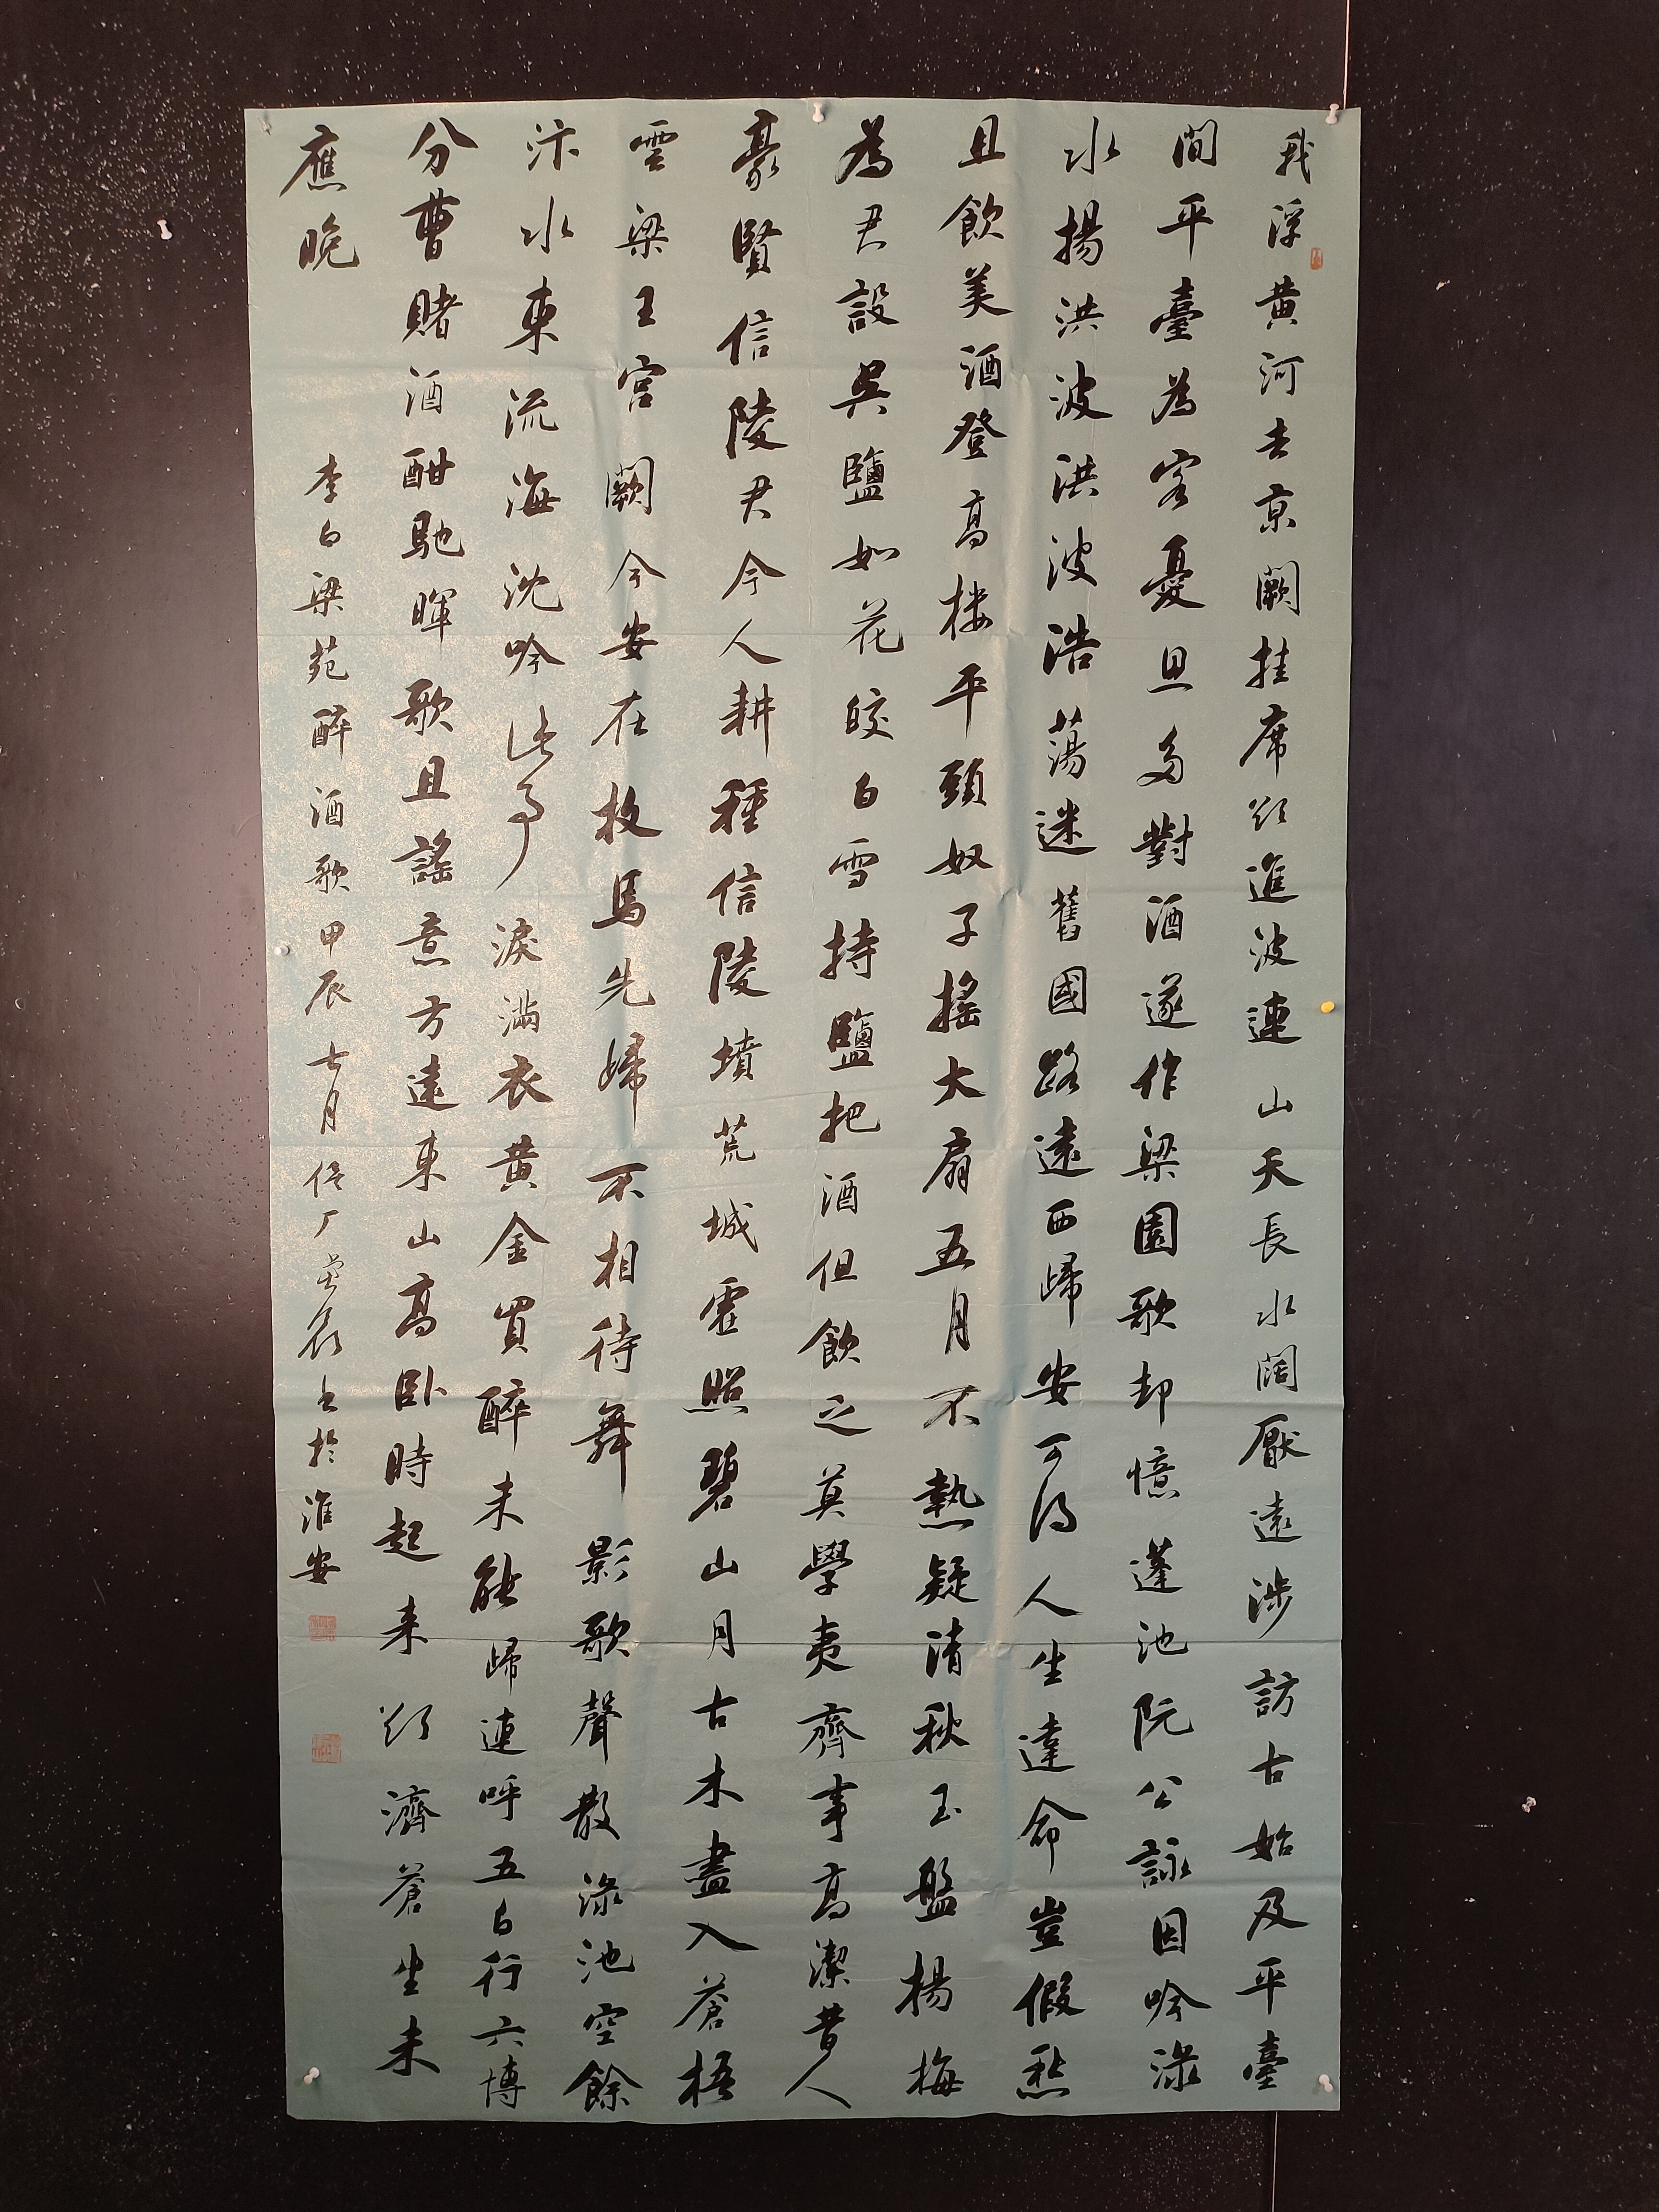 我浮黄河去京闕挂席欲進波連山天長水闊厭遠涉訪古始及平臺
間平臺為客憂且多對酒遂作梁園歌却憶蓬池阮公詠因吟渌
水揚洪波洪波浩蕩迷舊國路遠西歸安可得人生達命豈假愁
且飲美酒登高楼平頭奴子摇大扇五月不熱疑清秋玉盤楊梅
為君設吳鹽如花皎白雪持鹽把酒但飲之莫學夷齊事高潔昔人
豪賢信陵君今人耕種信陵墳荒城虚照碧山月古木盡入蒼梧
雲梁王宫闕今安在枚馬先歸不相待舞影歌聲散渌池空餘
汴水東流海沈吟此事淚滿衣黄金買醉未能歸連呼五白行六博
分曹賭酒酣馳暉歌且謠意方遠東山高卧時起来欲濟蒼生未
應晚
李白梁苑醉酒歌甲辰七月 书於淮安